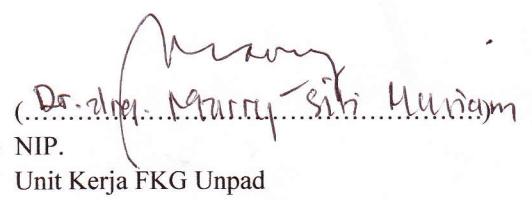 (Dr. drg. Murry Siti Muriam)
NIP.
Unit Kerja FKG Unpad